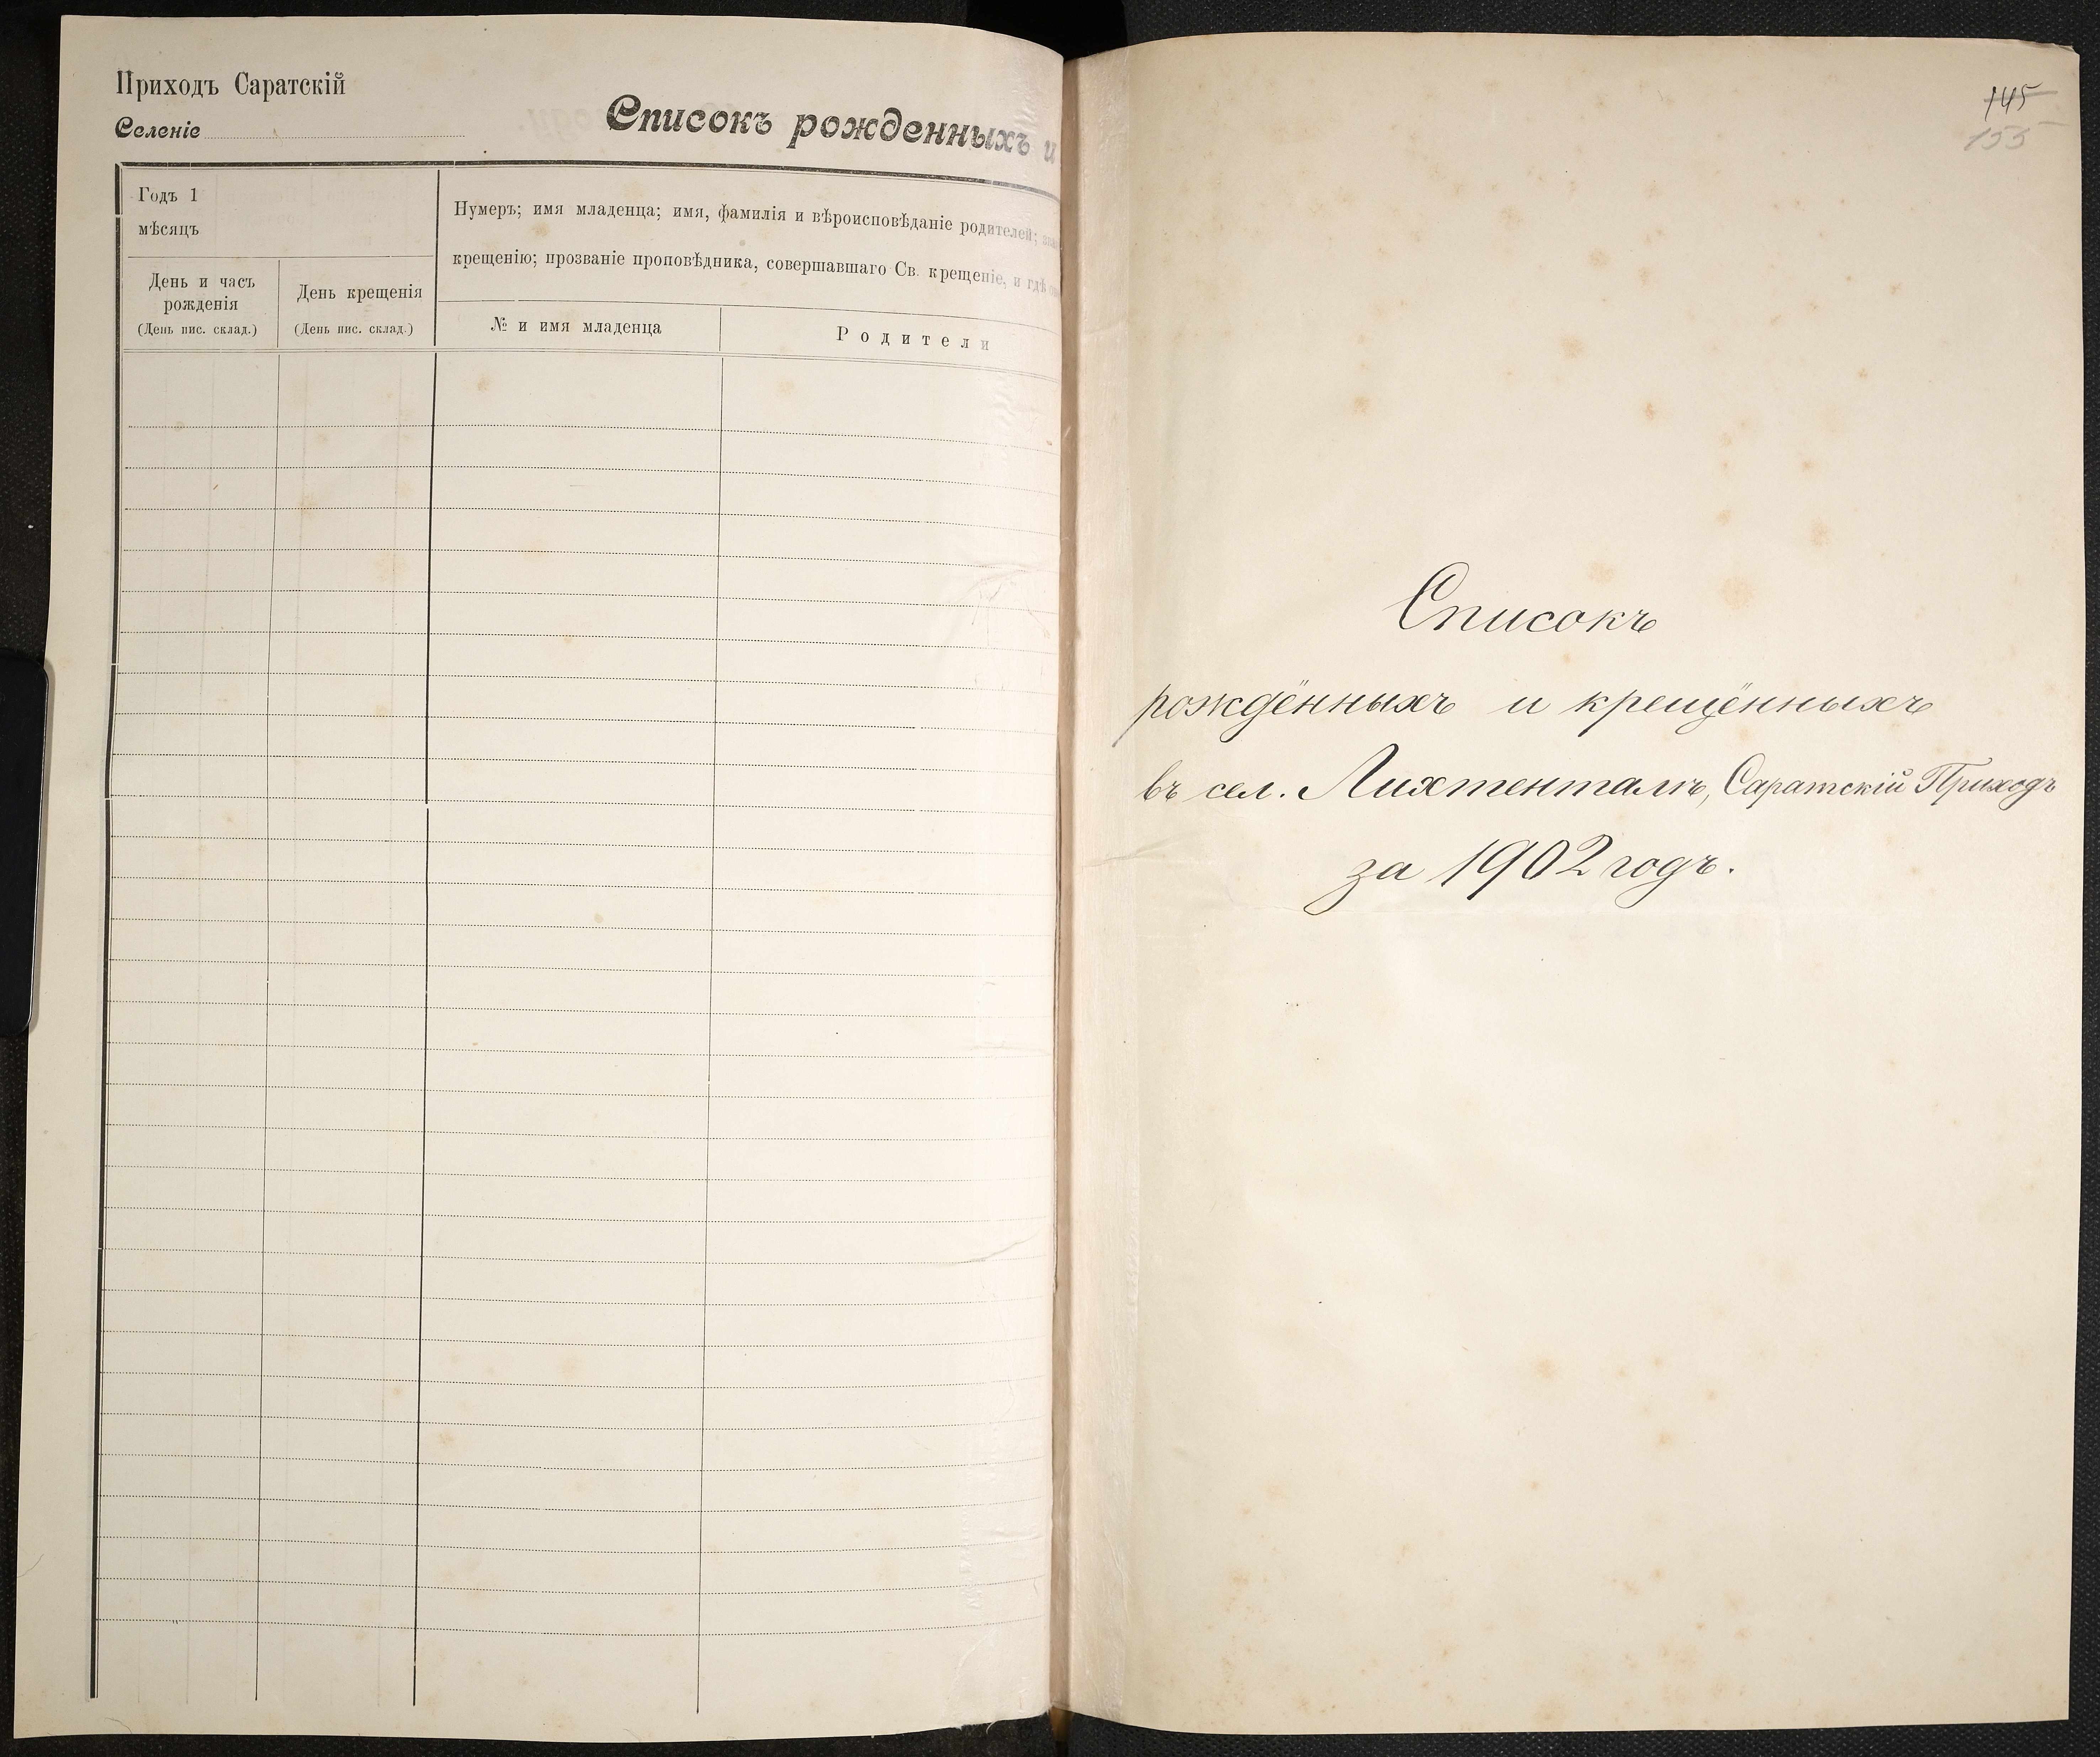 Приходъ Саратскій
Селеніе
Списокъ рожденныхъ и
Годъ 1
мѣсяцъ
День и часъ
рожденія
(День пис. склад.)
День крещенія
(День пис. склад.)
Нумеръ; имя младенца; имя, фамилія и вѣроисповѣданіе родителей;
крещенію; прозваніе проповѣдника, совершавшаго Св. крещеніе, и гдѣ
№ и имя младенца
Родители
145
155
Списокъ
рождённыхъ и крещённыхъ
въ сел. Лихтенталъ, Саратскій Приходъ
за 1902 годъ.